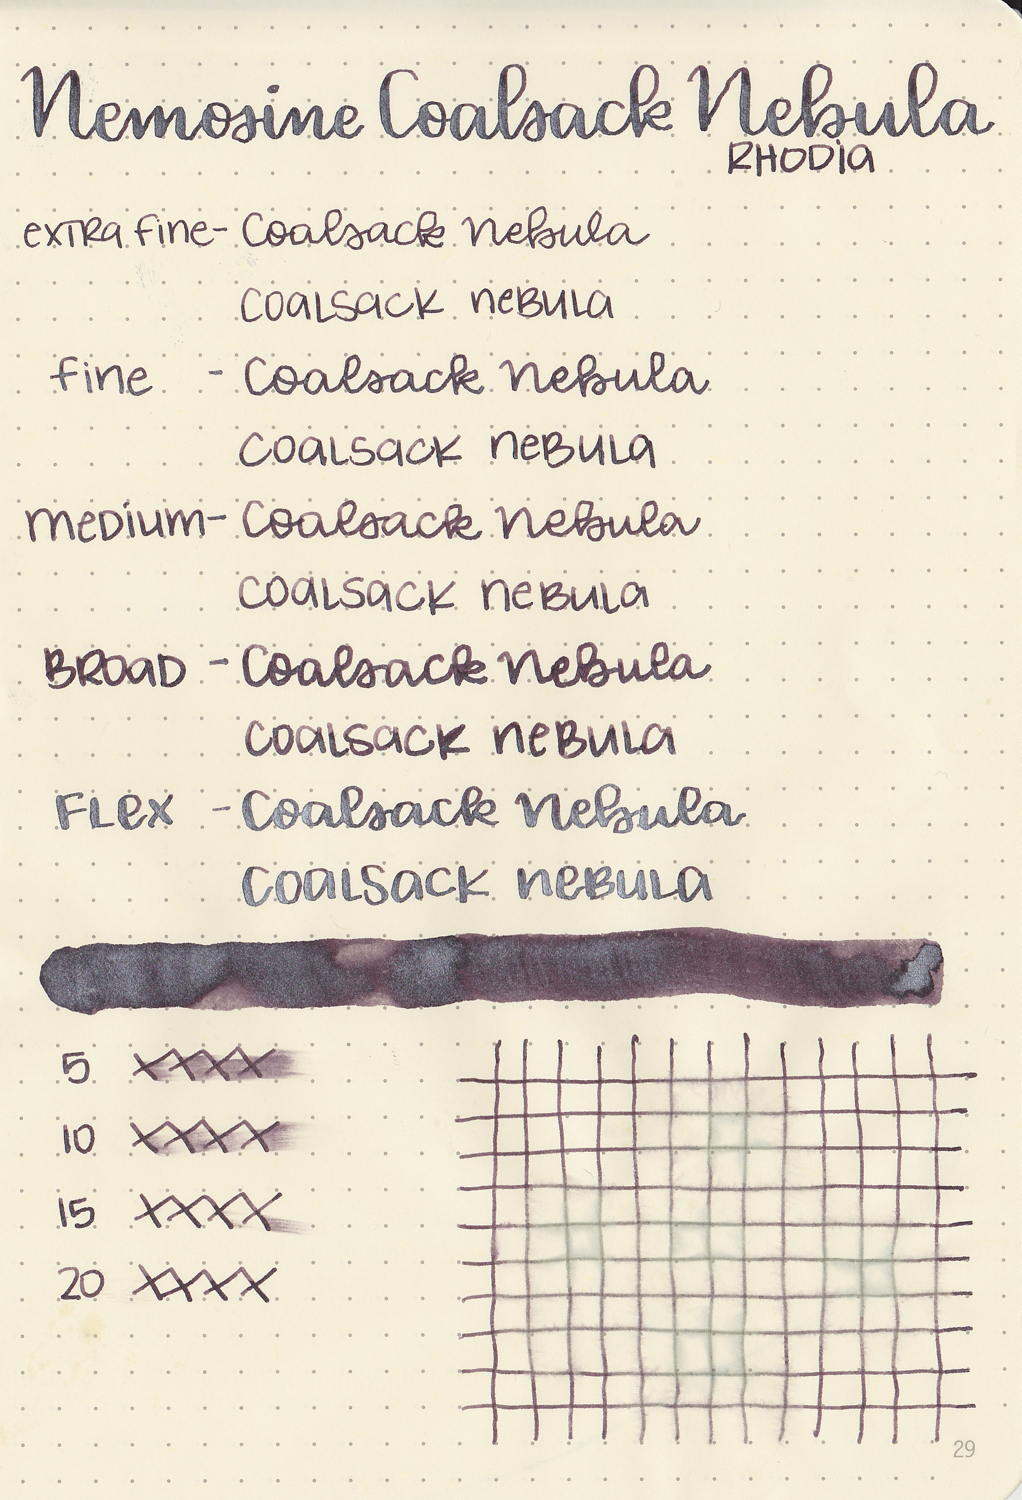 Nemosine Coalsack Nebula
RHODIA
extra fine - Coalsack Nebula
COALSACK NEBULA
fine - Coalsack Nebula
COALSACK NEBULA
MEDIUM - Coalsack Nebula
COALSACK NEBULA
BROAD - Coalsack Nebula
COALSACK NEBULA
FLEX - Coalsack Nebula
COALSACK NEBULA
5 XXXX
10 XXXX
15 XXXX
20 XXXX
29